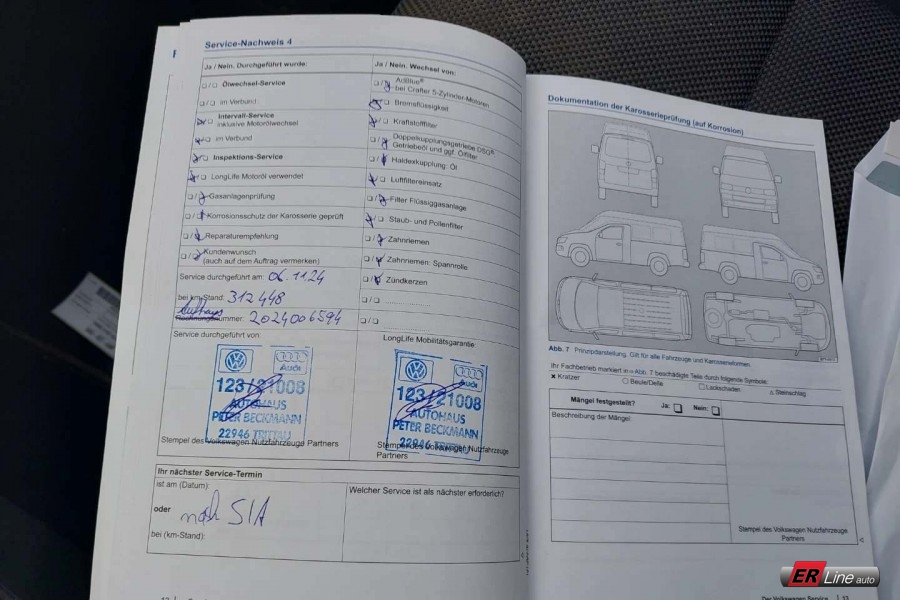 Service-Nachweis 4
Ja / Nein. Durchgeführt wurde:
Ölwechsel-Service
im Verbund
Intervall-Service
inklusive Motorölwechsel
im Verbund
Inspektions-Service
LongLife Motoröl verwendet
Gasanlagenprüfung
Korrosionsschutz der Karosserie geprüft
Reparaturempfehlung
Kundenwunsch
(auch auf dem Auftrag vermerken)
Service durchgeführt am: 06.11.24
bei km-Stand: 312 448
2024006594
Service durchgeführt von:
Audi
123/21008
AUTOHAUS
PETER BECKMANN
22946 TRITTAU
Stempel des Volkswagen Nutzfahrzeuge Partners
Ja / Nein. Wechsel von:
AdBlue®
bei Crafter 5-Zylinder-Motoren
Bremsflüssigkeit
Kraftstofffilter
Doppelkupplungsgetriebe DSG®
Getriebeöl und ggf. Ölfilter
Haldexkupplung: Öl
Luftfiltereinsatz
Filter Flüssiggasanlage
Staub- und Pollenfilter
Zahnriemen
Zahnriemen: Spannrolle
Zündkerzen
LongLife Mobilitätsgarantie:
Audi
123/21008
AUTOHAUS
PETER BECKMANN
22946 TRITTAU
Stempel des Volkswagen Nutzfahrzeuge
Partners
Ihr nächster Service-Termin
ist am (Datum):
oder nach SIA
bei (km-Stand):
Welcher Service ist als nächster erforderlich?
Dokumentation der Karosserieprüfung (auf Korrosion)
Abb. 7 Prinzipdarstellung. Gilt für alle Fahrzeuge und Karosserieformen.
Ihr Fachbetrieb markiert in ⇒ Abb. 7 beschädigte Teile durch folgende Symbole:
Kratzer
Beule/Delle
Lackschaden
Steinschlag
Mängel festgestellt? Ja: Nein:
Beschreibung der Mängel:
Stempel des Volkswagen Nutzfahrzeuge
Partners
Der Volkswagen Service 13
ER Line auto